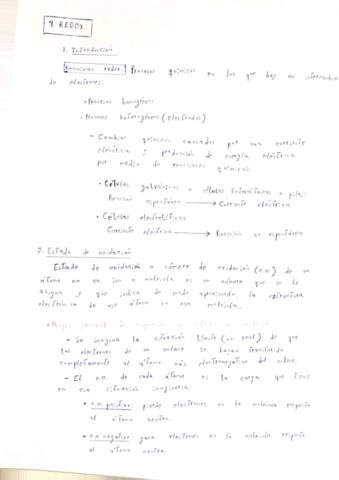 4. REDOX
1. Introducción
Reacciones redox: Procesos químicos en los que hay un intercambio
de electrones.
• Procesos homogéneos
• Procesos heterogéneos (electrodos)
- Cambios químicos causados por una corriente
eléctrica y producción de energía eléctrica
por medio de reacciones químicas.
• Células galvánicas o células voltaicas o pilas:
Reacción espontánea → Corriente eléctrica
• Células electrolíticas
Corriente eléctrica → Reacción no espontánea
2. Estado de oxidación
Estado de oxidación o número de oxidación (e.o.) de un
átomo en un ion o molécula es un número que se le
asigna y que indica de modo aproximado la estructura
electrónica de ese átomo en esa molécula.
• Regla general de asignación
- Se imagina la situación límite (no real) de que
los electrones de un enlace se hayan transferido
completamente al átomo más electronegativo del enlace.
- El e.o. de cada átomo es la carga que tiene
en esa situación imaginaria.
• e.o. positivo: pierde electrones en la molécula respecto
al átomo neutro.
• e.o. negativo: gana electrones en la molécula respecto
al átomo neutro.